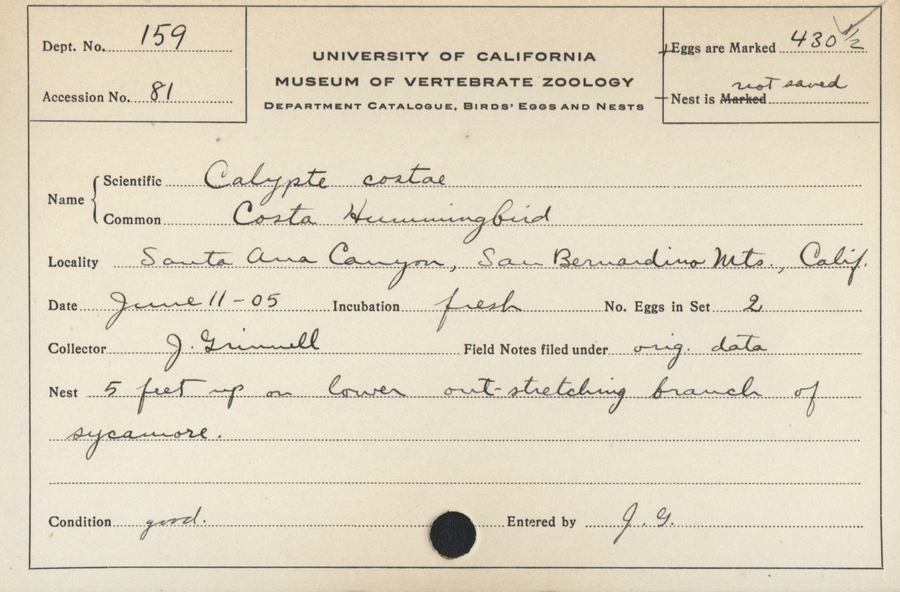 Dept. No. 159
Accession No. 81
UNIVERSITY OF CALIFORNIA
MUSEUM OF VERTEBRATE ZOOLOGY
DEPARTMENT CATALOGUE, BIRDS' EGGS AND NESTS
Eggs are Marked 430 1/2
not saved
Nest is Marked
Name
Scientific Calypte costae
Common Costa Hummingbird
Locality Santa Ana Canyon, San Bernardino Mts., Calif.
Date June 11-05 Incubation fresh No. Eggs in Set 2
Collector J. Grinnell Field Notes filed under orig. data
Nest 5 feet up on lower out-stretching branch of
sycamore.
Condition good. Entered by J. G.